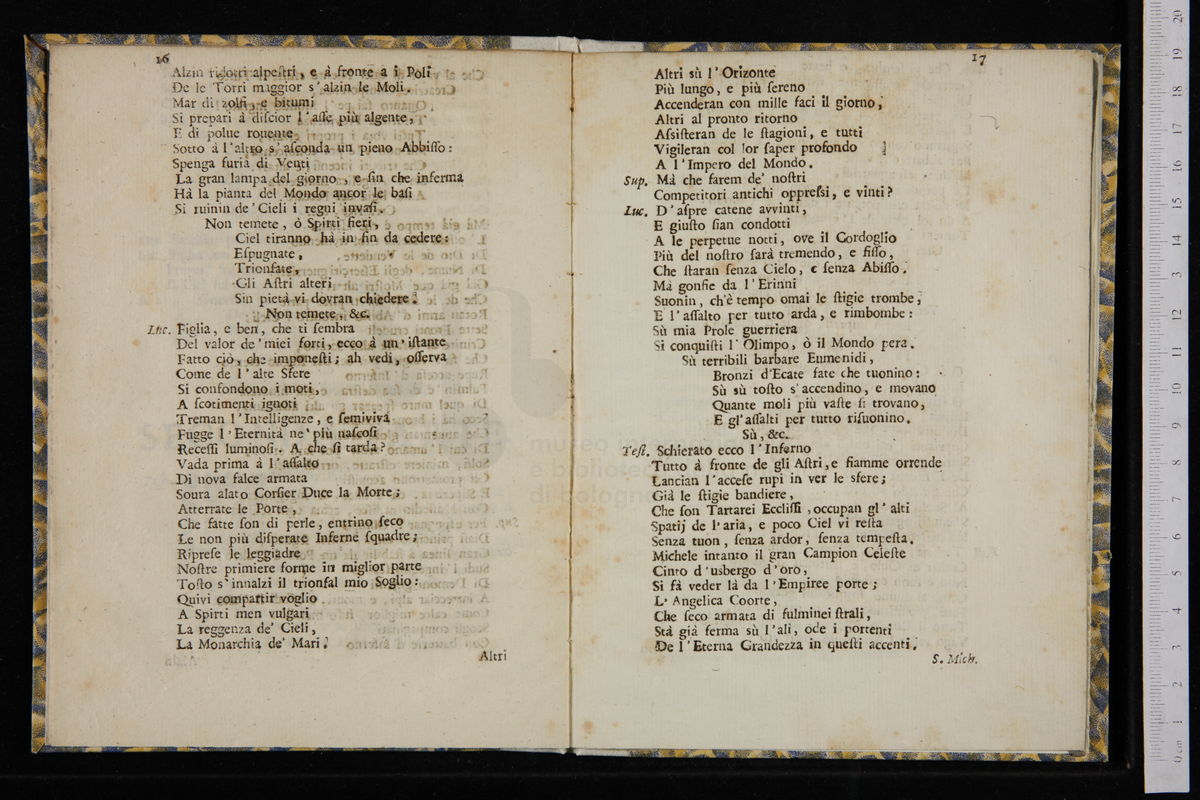 16
Alzin ridotti alpeſtri, e à fronte a i Poli
De le Torri maggior s'alzin le Moli.
Mar di zolfi, e bitumi
Si prepari à diſcior l'aſſe più algente,
E di polue rouente
Sotto à l'altro s'aſconda un pieno Abbiſſo:
Spenga furia di Venti
La gran lampa del giorno, e ſin che inferma
Hà la pianta del Mondo ancor le baſi
Si ruinin de' Cieli i regni invaſi.
Non temete, ò Spirti fieri,
Ciel tiranno hà in fin da cedere:
Eſpugnate,
Trionfate,
Gli Aſtri alteri
Sin pietà vi dovran chiedere.
Non temete, &c.
Luc. Figlia, e ben, che ti ſembra
Del valor de' miei forti, ecco à un' iſtante
Fatto ciò, che imponeſti; ah vedi, oſſerva
Come de l'alte Sfere
Si confondono i moti,
A ſcotimenti ignoti
Treman l'Intelligenze, e ſemiviva
Fugge l'Eternità ne' più naſcoſi
Receſſi luminoſi. A che ſi tarda?
Vada prima à l'aſſalto
Di nova falce armata
Soura alato Corſier Duce la Morte;
Atterrate le Porte,
Che fatte ſon di perle, entrino ſeco
Le non più diſperate Inferne ſquadre;
Ripreſe le leggiadre
Noſtre primiere forme in miglior parte
Toſto s'innalzi il trionfal mio Soglio:
Quivi compartir voglio
A Spirti men vulgari
La reggenza de' Cieli,
La Monarchia de' Mari.
Altri
17
Altri sù l'Orizonte
Più lungo, e più ſereno
Accenderan con mille faci il giorno,
Altri al pronto ritorno
Aſsiſteran de le ſtagioni, e tutti
Vigileran col lor ſaper profondo
A l'Impero del Mondo.
Sup. Mà che farem de' noſtri
Competitori antichi oppreſsi, e vinti?
Luc. D'aſpre catene avvinti,
E giuſto ſian condotti
A le perpetue notti, ove il Cordoglio
Più del noſtro ſarà tremendo, e fiſſo,
Che ſtaran ſenza Cielo, e ſenza Abiſſo.
Mà gonfie da l'Erinni
Suonin, ch'è tempo omai le ſtigie trombe,
E l'aſſalto per tutto arda, e rimbombe:
Sù mia Prole guerriera
Si conquiſti l'Olimpo, ò il Mondo pera.
Sù terribili barbare Eumenidi,
Bronzi d'Ecate fate che tuonino:
Sù sù toſto s'accendino, e movano
Quante moli più vaſte ſi trovano,
E gl'aſſalti per tutto riſuonino.
Sù, &c.
Teſt. Schierato ecco l'Inferno
Tutto à fronte de gli Aſtri, e fiamme orrende
Lancian l'acceſe rupi in ver le sfere;
Già le ſtigie bandiere,
Che ſon Tartarei Eccliſſi, occupan gl'alti
Spatij de l'aria, e poco Ciel vi reſta
Senza tuon, ſenza ardor, ſenza tempeſta.
Michele intanto il gran Campion Celeſte
Cinto d'usbergo d'oro,
Si fà veder là da l'Empiree porte;
L'Angelica Coorte,
Che ſeco armata di fulminei ſtrali,
Stà già ferma sù l'ali, ode i portenti
De l'Eterna Grandezza in queſti accenti.
S. Mich.